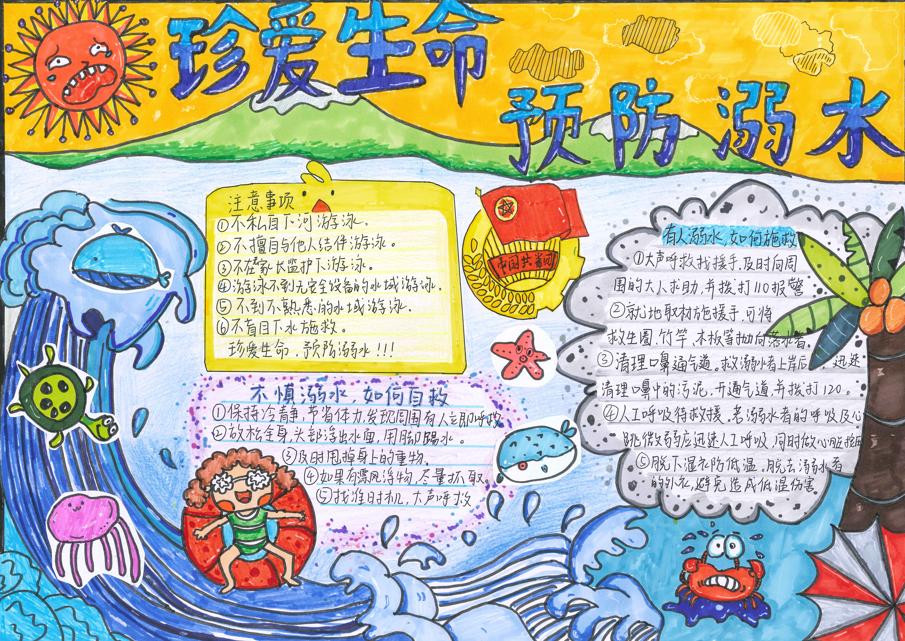 珍爱生命
预防溺水
注意事项
①不私自下河游泳.
②不擅自与他人结伴游泳。
③不在家长监护下游泳。
④游泳不到无安全设备的水域游泳.
⑤不到不熟悉的水域游泳.
⑥不盲目下水施救。
珍爱生命.预防溺水!!!
中国共青团
不慎溺水,如何自救
①保持冷静,节省体力,发现周围有人立即呼救
②放松全身,头部浮出水面,用脚踢水。
③及时甩掉身上的重物.
④如果有漂浮物,尽量抓取.
⑤找准时机,大声呼救
有人溺水,如何施救
①大声呼救找援手,及时向周
围的大人求助,并拨打110报警
②就地取材施援手,可将
救生圈,竹竿,木板等抛向落水者.
③清理口鼻通气道,救溺水者上岸后 迅速
清理口鼻中的污泥,开通气道,并拨打120。
④人工呼吸待救援,若溺水者的呼吸及心
跳微弱应迅速人工呼吸,同时做心脏按
⑤脱下湿衣防低温,脱去溺水者
的外衣,避免造成低温伤害